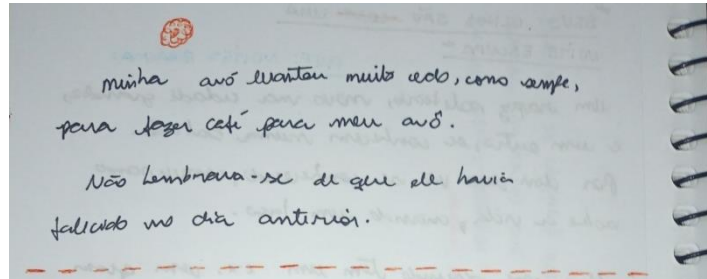 minha avó levantou muito cedo, como sempre,
para fazer café para meu avô.
Não lembrava-se de que ele havia
falecido no dia anterior.